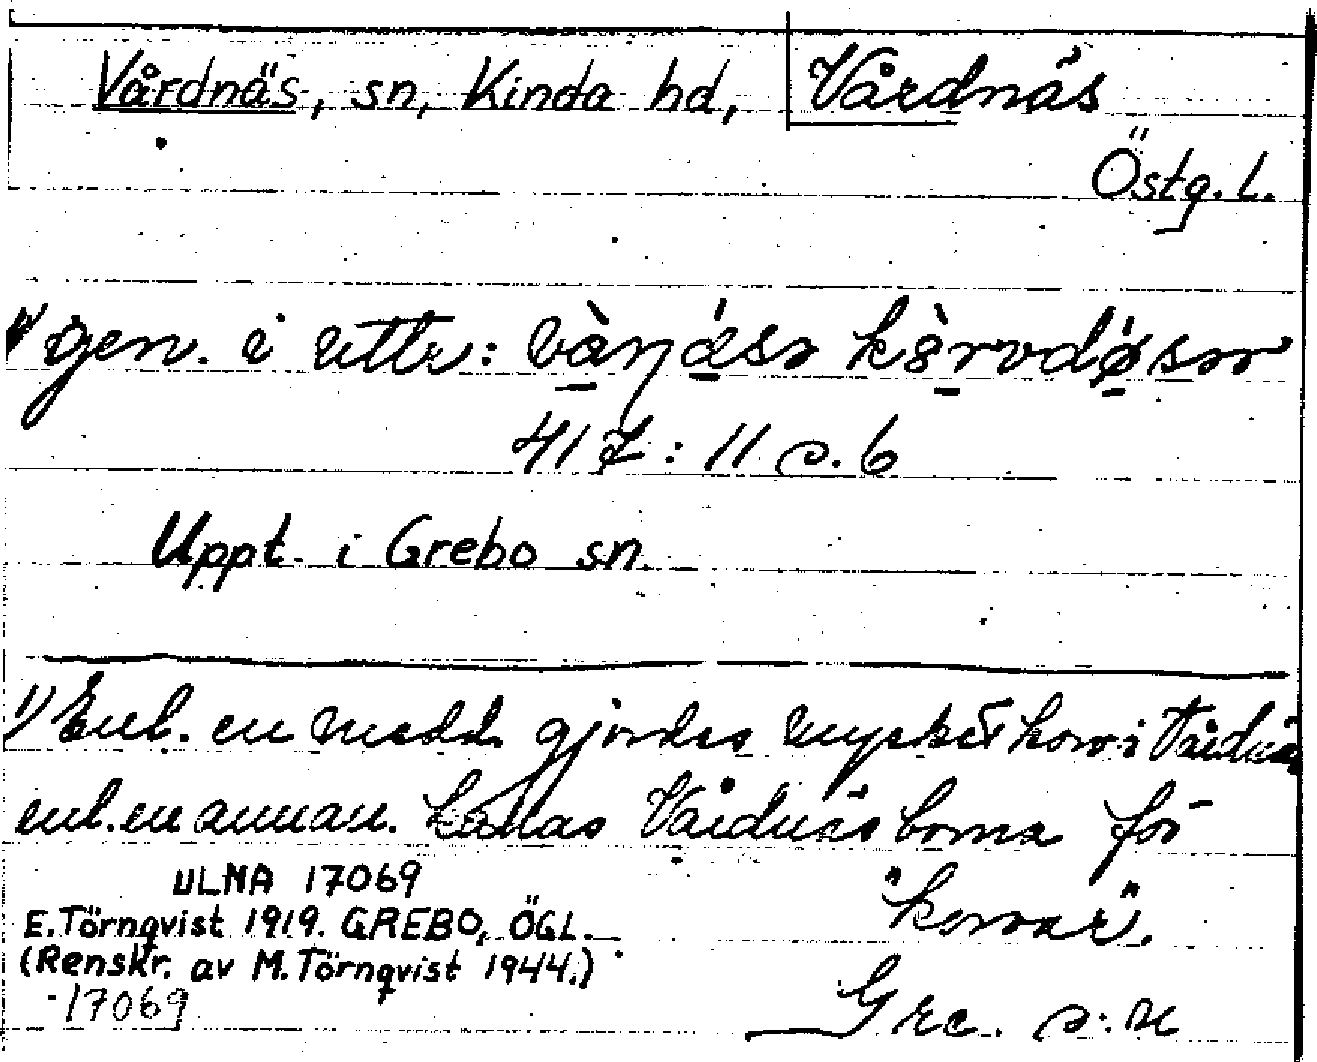 Vårdnäs, sn, Kinda hd, Vårdnäs
Östg. l.
1) gen. i uttr:
417: 11 s. 6
Uppt. i Grebo sn.
1) Enl. en medd. gjordes mycket korv i Vårdnäs
enl. en annan. kallas Vårdnäsborna för
"korvar".
ULMA 17069
E. Törnqvist 1919. GREBO, ÖGL.
(Renskr. av M. Törnqvist 1944.)
17069
Gre. s:n